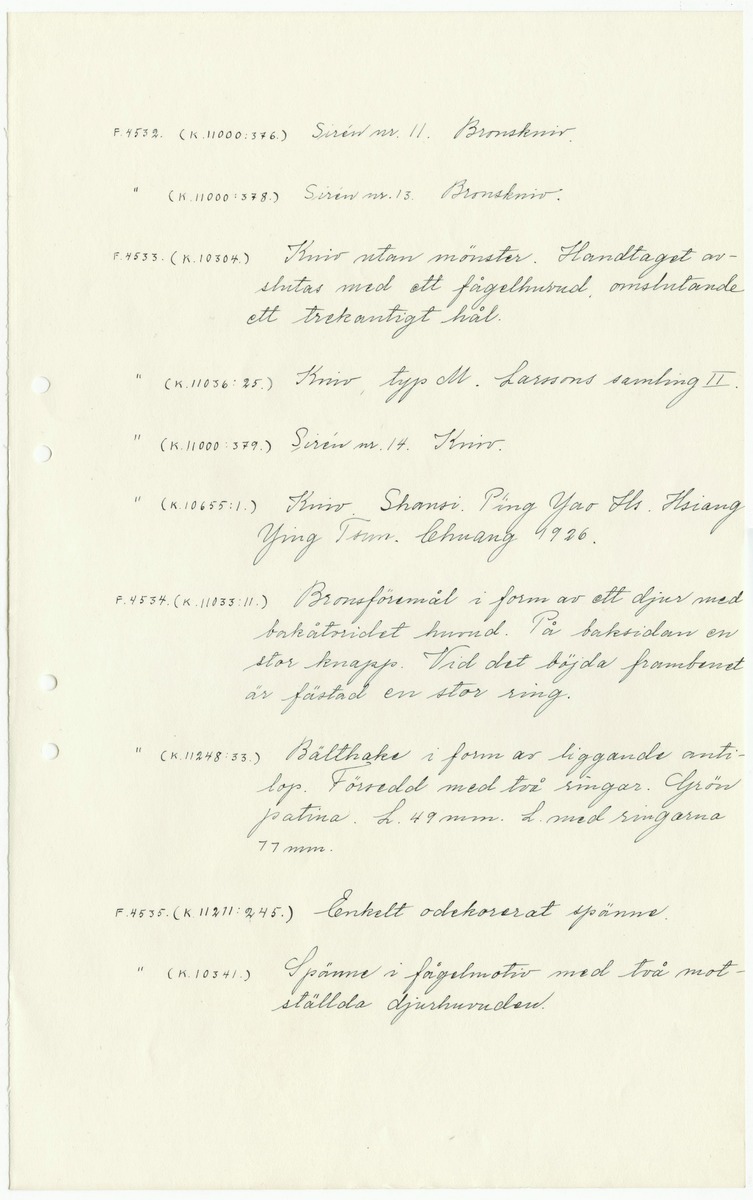 F.4532. (K.11000:376.) Sirén nr. 11. Bronskniv.
" (K.11000:378.) Sirén nr. 13. Bronskniv.
F.4533. (K.10304.) Kniv utan mönster. Handtaget av-
slutas med ett fågelhuvud, omslutande
ett trekantigt hål.
" (K.11036:25.) Kniv, typ M. Larssons samling II.
" (K.11000:379.) Sirén nr. 14. Kniv.
" (K.10655:1.) Kniv. Shansi. P'ing Yao Hs. Hsiang
Ying Tsun. Chuang 1926.
F.4534. (K.11033:11.) Bronsföremål i form av ett djur med
bakåtvridet huvud. På baksidan en
stor knapp. Vid det böjda frambenet
är fästad en stor ring.
" (K.11248:33.) Bälthake i form av liggande anti-
lop. Försedd med två ringar. Grön
patina. L. 49 mm. L. med ringarna
77 mm.
F.4535. (K 11271:245.) Enkelt odekorerat spänne.
" (K.10341.) Spänne i fågelmotiv med två mot-
ställda djurhuvuden.